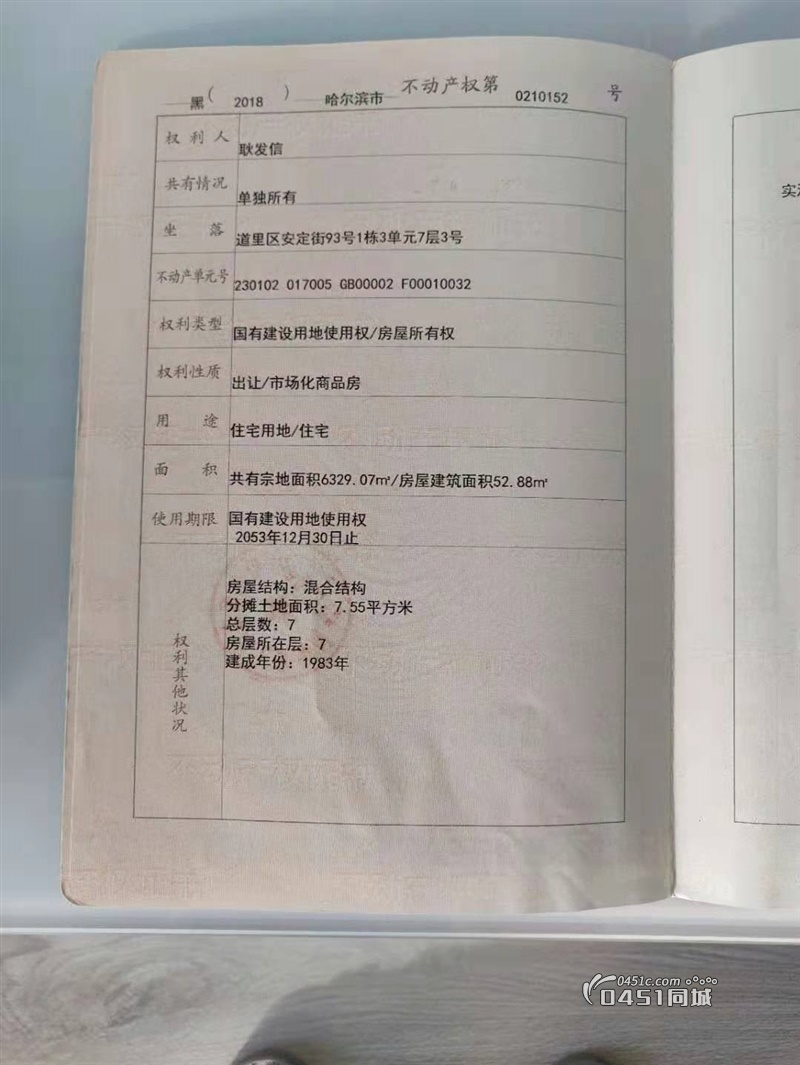 黑（ 2018 ） 哈尔滨市 不动产权第 0210152 号
权利人 耿发信
共有情况 单独所有
坐落 道里区安定街93号1栋3单元7层3号
不动产单元号 230102 017005 GB00002 F00010032
权利类型 国有建设用地使用权/房屋所有权
权利性质 出让/市场化商品房
用途 住宅用地/住宅
面积 共有宗地面积6329.07㎡/房屋建筑面积52.88㎡
使用期限 国有建设用地使用权
2053年12月30日止
权利其他状况
房屋结构：混合结构
分摊土地面积：7.55平方米
总层数：7
房屋所在层：7
建成年份：1983年
0451c.com
0451同城